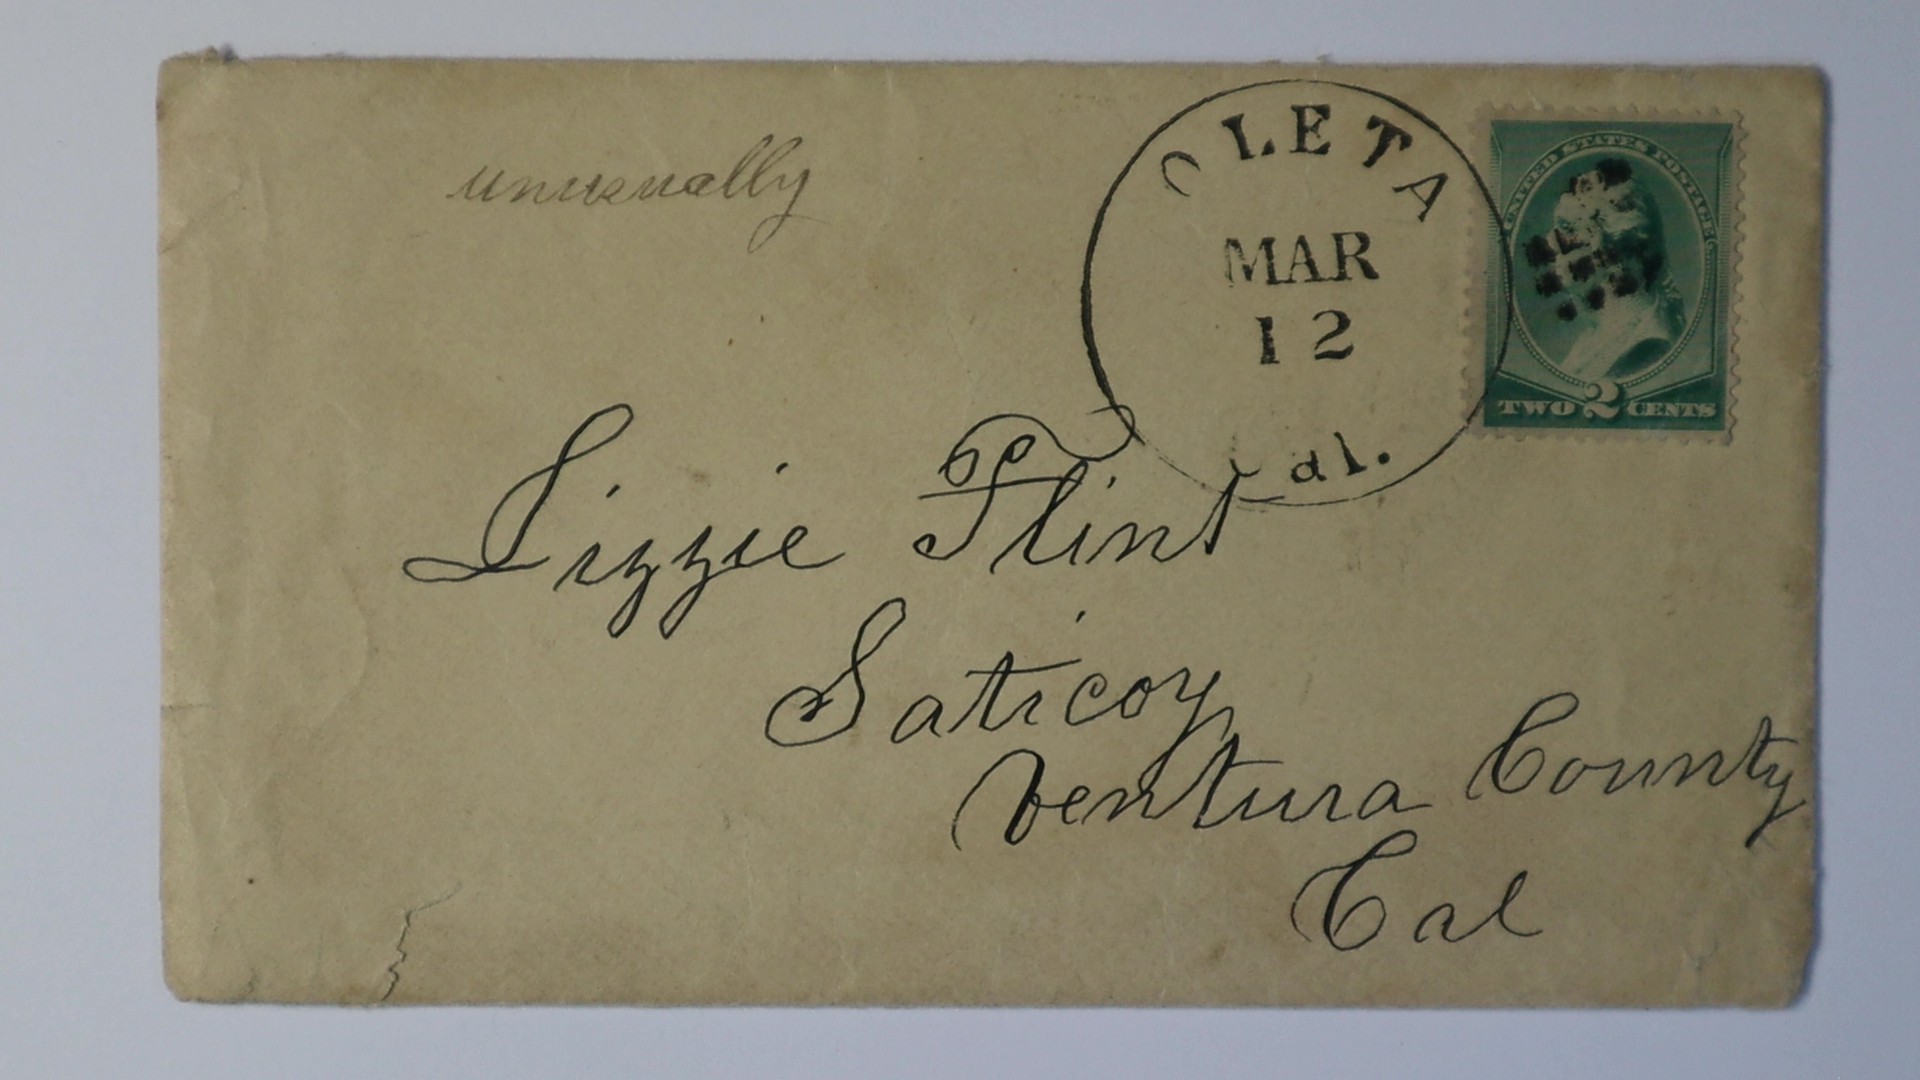 unusually
OLETA
MAR
12
Cal.
UNITED STATES POSTAGE
TWO 2 CENTS
Lizzie Flint
Saticoy
Ventura County
Cal